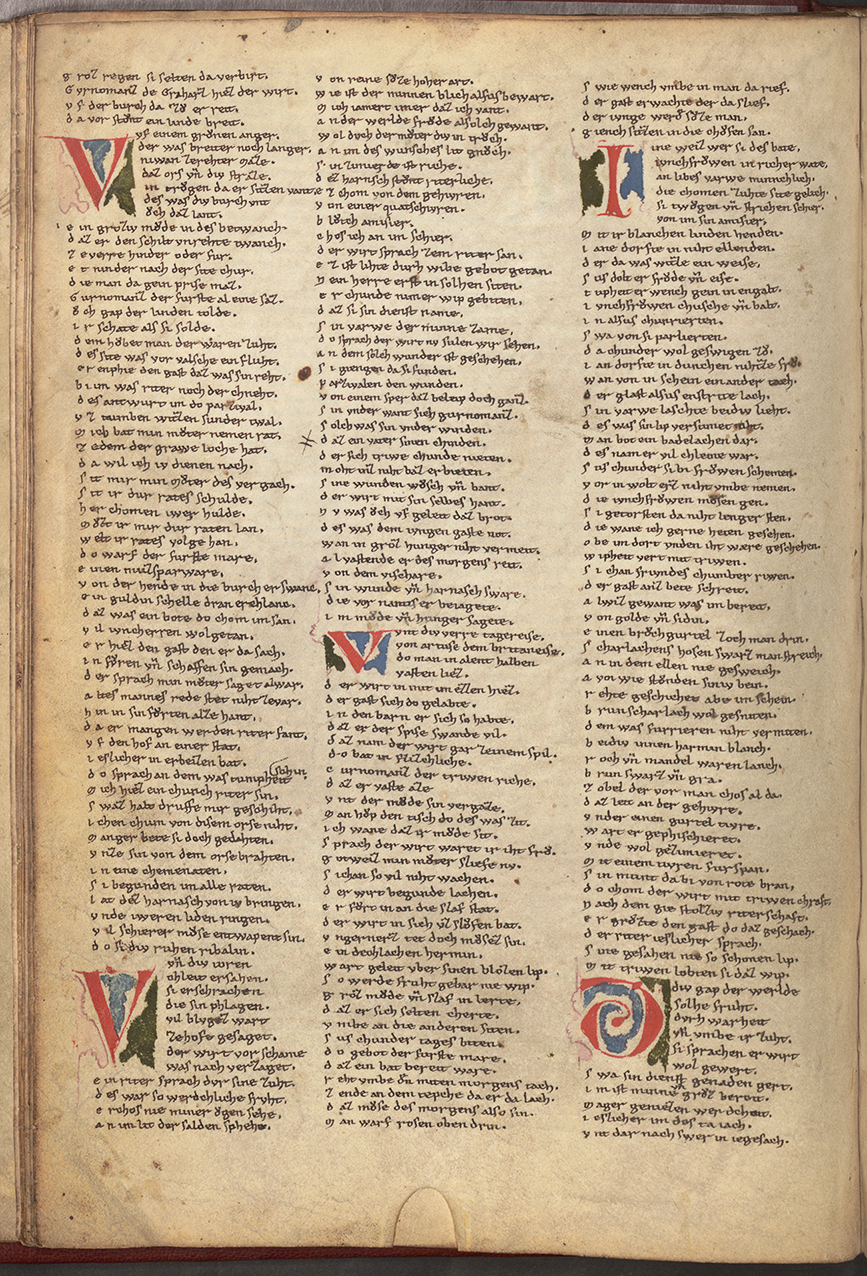 g roz regen si selten da verbirt.
G vrnomanz de Graharz hiez der wirt.
v f der burch da zv er reit.
d a vor stont ein linde breit.
V f einem gronen anger.
der was breiter noch langer.
niwan ze rehter maze.
daz ors vñ div straze.
in trogen da er sitzen vant.
des was div burch vnt
och daz lant.
e in groziv mode in des betwanch.
d az er den schilt vnrehte swanch.
z e verre hinder oder fur.
e t ninder nach der site chur.
d ie man da gein prise maz.
G urnomanz der furste al eine saz.
o ch gap der linden tolde.
i r schate als si solde.
d em hobet man der waren zuht.
d es site was vor valsche ein fluht.
er enphie den gast daz was sin reht.
b i im was riter noch der chneht.
d es antwurt im do parzival.
v z tumben witzen sunder twal.
m ich bat min moter nemen rat.
z edem der grawe loche hat.
d a wil ich iv dienen nach.
s it mir min moter des veriach.
s it ir dur rates schulde.
her chomen iwer hulde.
mozt ir mir dur raten lan.
welt ir rates volge han.
d o warf der furste mare.
e inen muzsparware.
v on der hende in die burch er swanc.
e in guldin schelle dran erchlanc.
d az was ein bote do chom im san.
v il iuncherren wolgetan.
e r hiez den gast den er da sach.
i n foren vñ schaffen sin gemach.
d er sprach min moter saget al war.
a ltes mannes rede stet niht ze var.
h in in si in forten alze hant.
d a er mangen werden riter fant.
v f den hof an einer stat.
i eslicher in erbeizen bat.
d o sprach an dem was tumpheit schin.
m ich hiez ein chunch riter sin.
s waz halt druffe mir geschiht.
i chen chum von disem orse niht.
m anger bete si doch gedahten.
v nze si in von dem orse brahten.
i n eine chemenaten.
s i begunden im alle raten.
l at dez harnasch von iv bringen.
v nde iweren liden ringen.
v il schierer mose entwapent sin.
d o si div ruhen ribalin.
V ñ div toren
chleit ersahen.
si erschrachen
die sin phlagen.
vil blugez wart
ze hofe gesaget.
der wirt vor schame
was nach verzaget.
e in riter sprach dvr sine zuht.
d es war so werdchliche fruht.
e rchos nie miner ogen sehe.
a n im lit der salden spehe.
v on reine soze hoher art.
w ie ist der minnen blich alsus bewart.
m ich iamert imer daz ich vant.
a n der werlde frode alsolch gewant.
w ol doch der moter div in troch.
a n im des wunsches lit gnoch.
s in zimierde ist riche.
d ez harnisch stont riterliche.
e z chom von dem gehivren.
v on einer quatschiren.
b lotch amisier.
e hos ich an im schier.
d er wirt sprach zem riter san.
e z ist lihte durh wibe gebot getan.
n ein herre erst in solhen siten.
e r chunde nimer wip gebiten.
d az si sin dienst name.
s in varwe der minne zame.
d o sprach der wirt nv sulen wir sehen.
a n dem solch wunder ist geschehen.
s i giengen da si funden.
p arzivalen den wunden.
v on einem sper daz beleip doch ganz.
s in vnder want sich gurnomanz.
s olch was sin vnder winden.
d az ein vater sinen chinden.
d er sich triwe chunde nieten.
m oht inz niht baz erbieten.
s ine wunden wosch vñ bant.
d er wirt mit sin selbes hant.
n v was och vf geleit daz brot.
d es was dem ivngen gaste not.
w an in groz hunger niht vermeit.
a l vastende er des morgens reit.
v on dem vischare.
s in wunde vñ harnasch sware.
d ie vor nantis er beiagete.
i m mode vñ hunger sagete.
V nt div verre tagereise.
von artuse dem britaneise.
do man in alent halben
vasten liez.
d er wirt in mit im ezzen hiez.
d er gast sich do gelabte.
i n den barn er sich so habte.
d az er der spise swande vil.
d az nam der wirt gar zeinem spil.
d o bat in flizchliche.
G urnomanz der triwen riche.
d az er vaste aze
v nt der mode sin vergaze.
m an hop den tisch do des was zit.
i ch wane daz ir mode sit.
s prach der wirt waret ir iht fro.
g otweiz min moter sliefe nv.
s ichan so vil niht wachen.
d er wirt begunde lachen.
e r fort in an die slaf stat.
d er wirt in sich vz slofen bat.
v ngernerz tet doch mosez sin.
e in dechlachen hermin.
w art geleit vber sinen blozen lip.
s o werde fruht gebar nie wip.
g roz mode vñ slaf in lerte.
d az er sich selten cherte.
v mbe an die anderen siten.
s us chunder tages biten.
d o gebot der furste mare.
d az ein bat bereit ware.
r eht vmbe den miten morgens tach.
z ende an dem tepche da er da lach.
d az mose des morgens also sin.
m an warf rosen oben drin.
s wie wench vmbe in man da rief.
d er gast erwachte der da slief.
d er ivnge werd soze man.
g iench sitzen in die chofen san.
I ine weiz wer si des bate,
ivnchfrowen in richer wate,
an libes varwe minnchlich.
die chomen zuhte site gelich.
si twogen vñ strichen schier.
von im sin amisier.
m it ir blanchen linden henden.
i ane dorfte in niht ellenden.
d er da was witze ein weise,
s us dolt er frode vñ eise.
t upheit er wench gein in engalt.
i vnchfrowen chusche vñ balt.
i n alsus chunrierten.
s wa von si parlierten.
d a chunder wol geswigen zv.
i an dorfte in dunchen niht ze fro.
w an von in schein ein ander tach.
d er glast alsus enstrite lach.
s in varwe laschte beidiv lieht.
d es was sin lip versumet niht.
m an bot ein badelachen dar.
d es nam er vil chleine war.
s us chunder sich bi frowen schemen.
v or in wolt erz niht vmbe nemen.
d ie ivnchfrowen mosen gen.
s i getorsten da niht lenger sten.
d ie wane ich gerne heten gesehen.
o be im dort vnden iht ware geschehen.
w ipheit vert mit triwen.
s i chan frivndes chumber riwen.
d er gast anz bete schreit.
a lwiz gewant was im bereit,
v on golde vñ sidin.
e inen brochgurtel zoch man drin.
s charlachens hosen swarz man streich.
a n in dem ellen nie gesweich.
a voy wie stonden siniv bein.
r ehte geschichet abe im schein.
b run scharlach wol gesniten.
d em was furrieren niht vermiten.
b eidiv innen harmin blanch.
r och vñ mandel waren lanch.
b run swarz vñ gra.
z obel der vor man chos al da.
d az leit an der gehivre.
v nder einen gurtel tivre.
w art er gephischieret.
v nde wol gezimieret.
m it einem tivren furspan.
s in munt da bi von rote bran.
d o chom der wirt mit triwen chraft.
n ach dem gie stolziv riterschaft.
e r grozte den gast do daz geschach.
d er riter ieslicher sprach.
s ine gesahen nie so schonen lip.
m it triwen lobten si daz wip.
D iv gap der werlde
solhe fruht.
durh warheit
vñ vmbe ir zuht.
si sprachen er wirt
wol gewert.
s wa sin dienst genaden gert.
i m ist minne vñ groz bereit.
m ager geniezen werdcheit.
i eslicher im des ta iach.
v nt dar nach swer in iegesach.